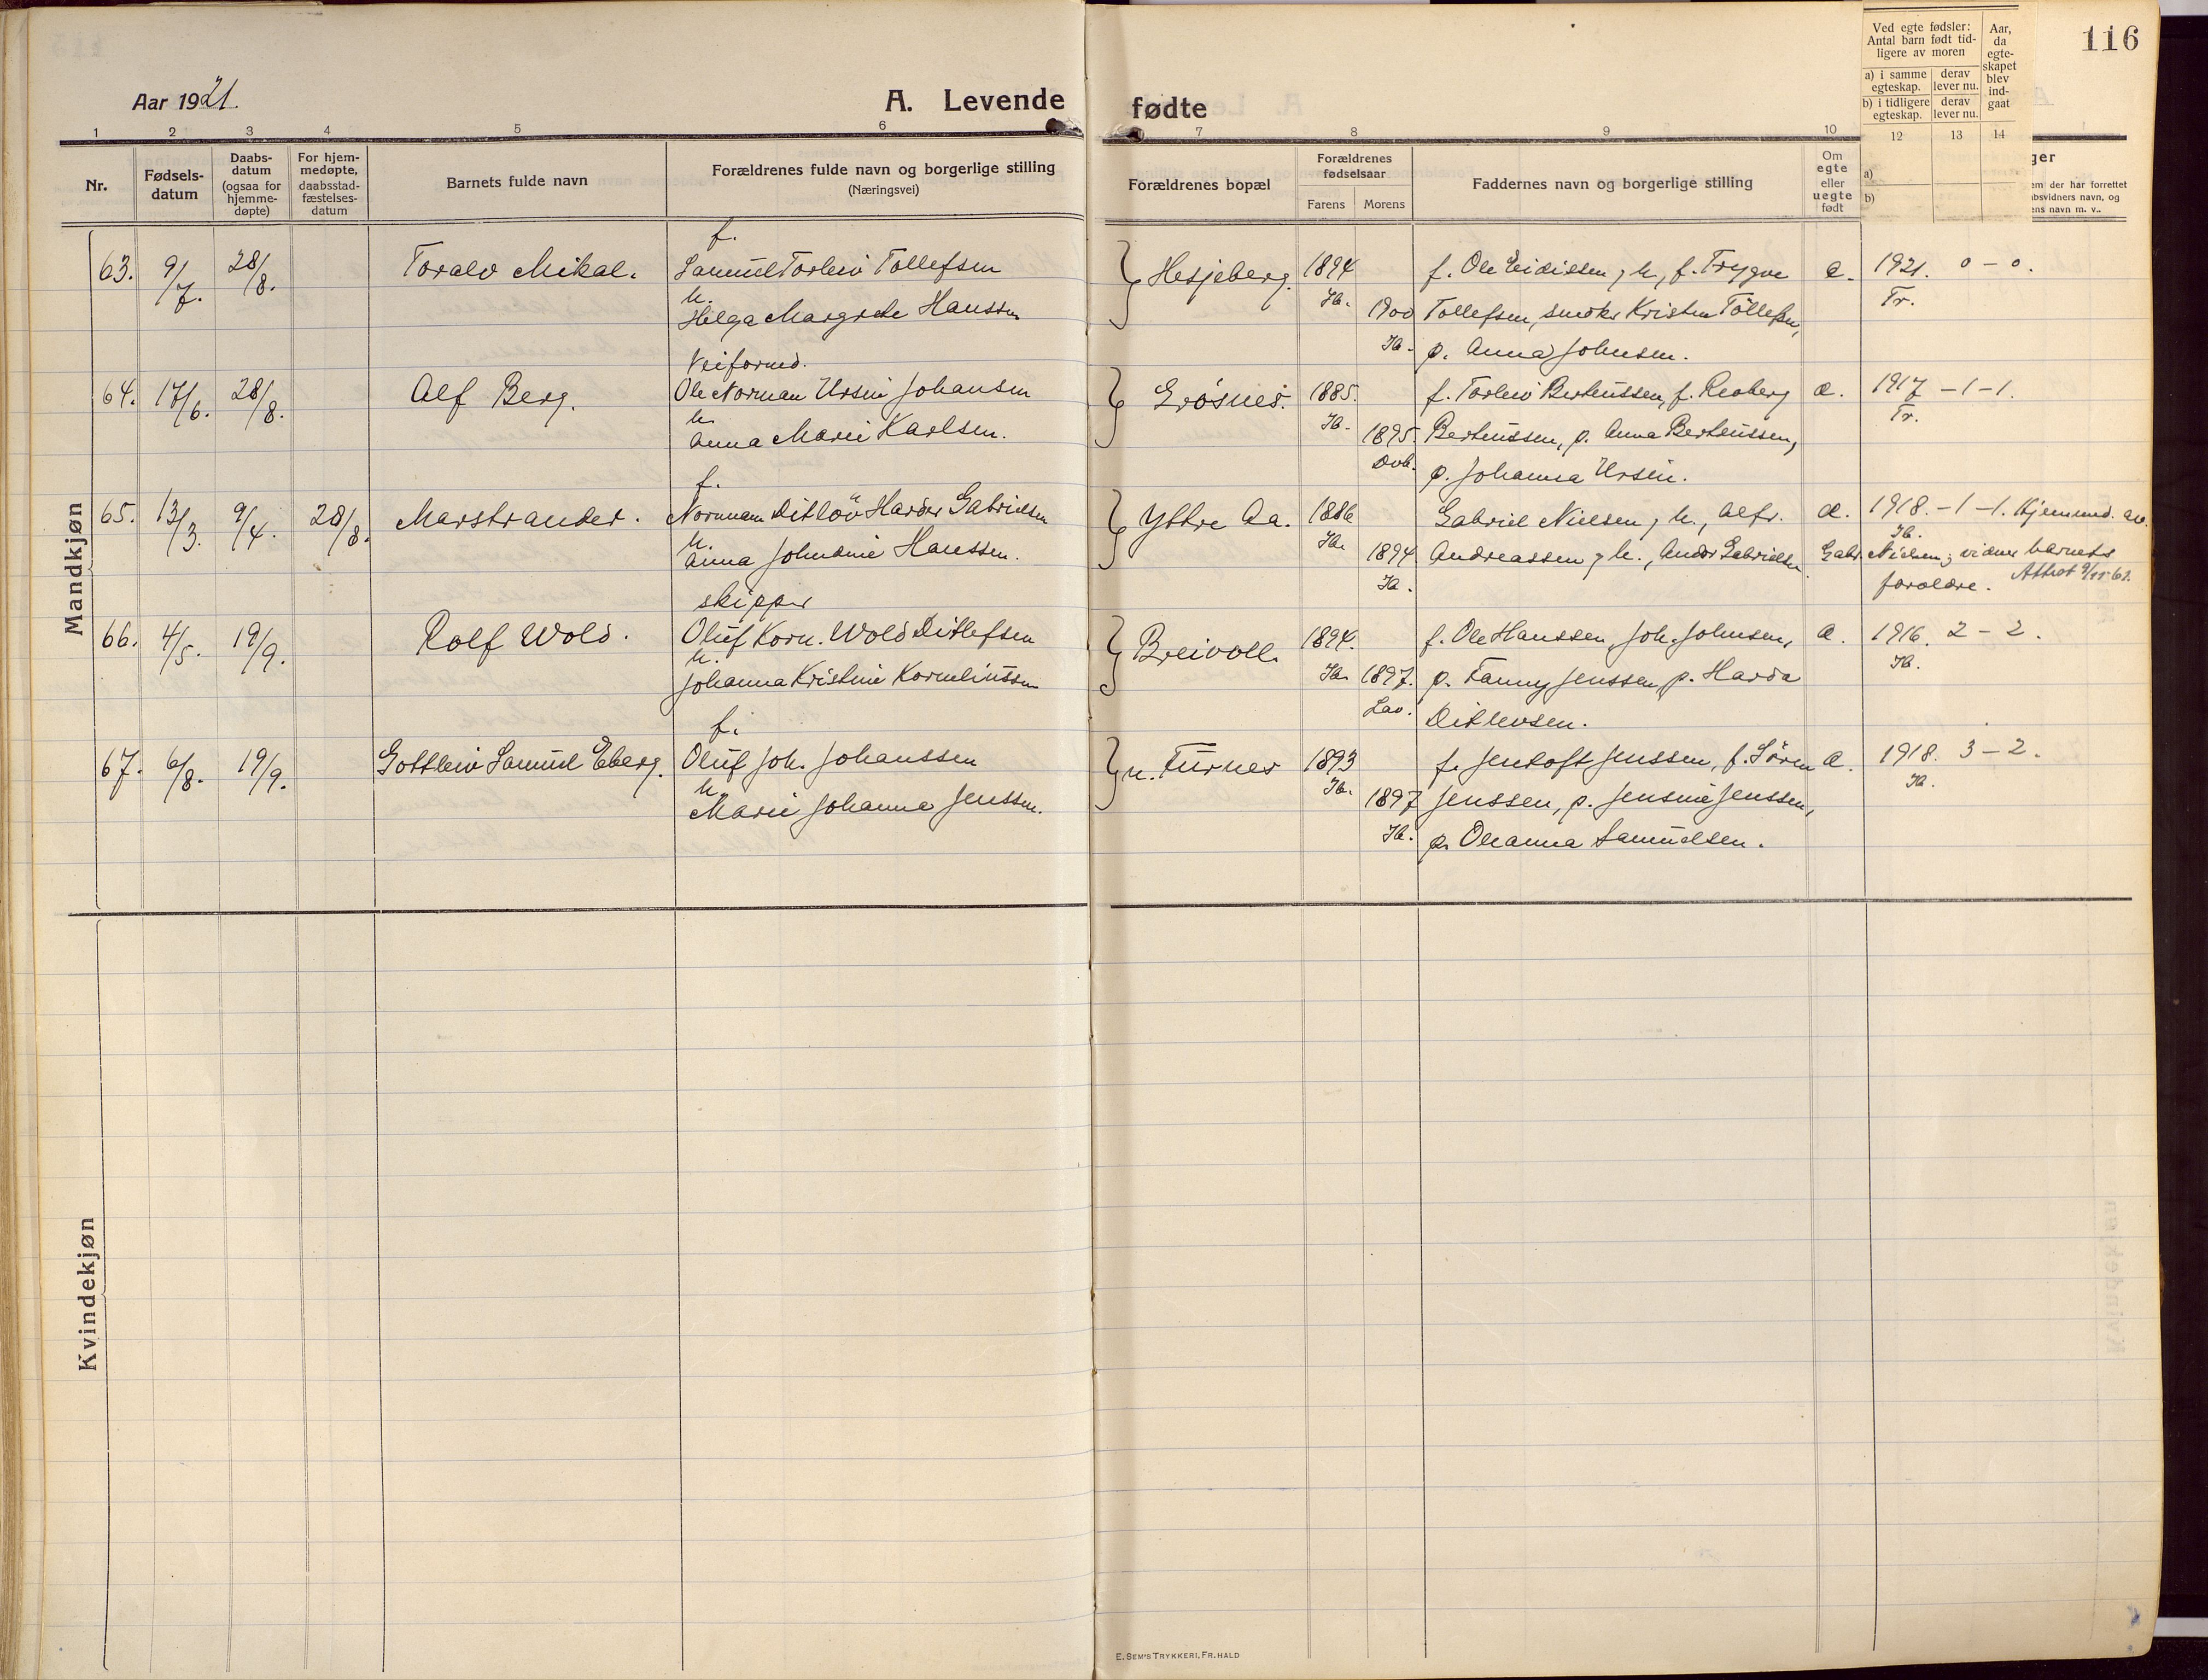 116
Aar 1921.
A. Levende fødte
1 2 3 4 5 6 7 8 9 10 12 13 14
Nr.
Fødsels-
datum
Daabs-
datum
(ogsaa for
hjemme-
døpte)
For hjem-
medøpte,
daabsstad-
fæstelses-
datum
Barnets fulde navn
Forældrenes fulde navn og borgerlige stilling
(Næringsvei)
Forældrenes bopæl
Forældrenes
fødselsaar
Farens Morens
Faddernes navn og borgerlige stilling
Om
egte
eller
uegte
født
Ved egte fødsler:
Antal barn født tid-
ligere av moren
a) i samme
egteskap.
derav
lever nu.
b) i tidligere
egteskap.
derav
lever nu.
Aar,
da
egte-
skapet
blev
ind-
gaat
a)
b)
ger
em der har forrettet
absvidners navn, og
ens navn m. v..
Mandkjøn
63. 9/7. 28/8. Toralv Mikal.
f.
Samuel Torleiv Tollefsen
h.
Helga Margrete Hanssen
Hesjeberg. 1894 Ib. 1900 Ib.
f. Ole Eidissen, h, f. Trygve
Tollefsen, smøke Kristen Tollefsen,
p. Anna Johnsen.
e. 1921. 0 - 0.
Tr.
64. 17/6. 28/8. Alf Berg.
Veiformd.
Ole Norman Ursin Johansen
h.
Anna Marie Karlsen.
Grøsnes. 1885. Ib. 1895. Dvb.
f. Torleiv Berteussen, f. Redberg
Berteussen, p. Anna Berteussen,
p. Johanna Ursin.
e. 1917 - 1 - 1.
Tr.
65. 13/3. 9/4. 28/8. Marstrander.
f.
Normann Ditlöv Harder Gabrielsen
h.
Anna Johanne Hanssen.
Yttre Aa. 1886 Ib. 1894 Ib.
Gabriel Nielsen, h., Alfr.
Andreassen, h., Andr Gabrielsen
e. 1918. - 1 - 1. Hjemmed. av
Ib.
Gabr. Nielsen; vidner barnets
forældre. Attest 9/11-62.
66. 4/5. 19/9. Rolf Wold.
skipper
Oluf Korn. Wold Ditlefsen
h.
Johanna Kristine Korneliussen
Breivoll. 1894. Ib. 1897. Lav.
f. Ole Hanssen, Joh. Johnsen,
p. Fanny Jenssen, p. Harda
Ditlevsen.
e. 1916. 2 - 2.
Ib.
67. 6/8. 19/9. Gottleiv Samuel Eberg.
f.
Oluf Joh. Johanssen
h.
Marie Johanna Jenssen.
n. Furnes 1893 Ib. 1897 Ib.
f. Jentoft Jenssen, f. Sören
Jenssen, p. Jensine Jenssen,
p. Oleanna Samuelsen.
e. 1918. 3 - 2.
Ib.
Kvindekjøn
E. SEM'S TRYKKERI, FR.HALD